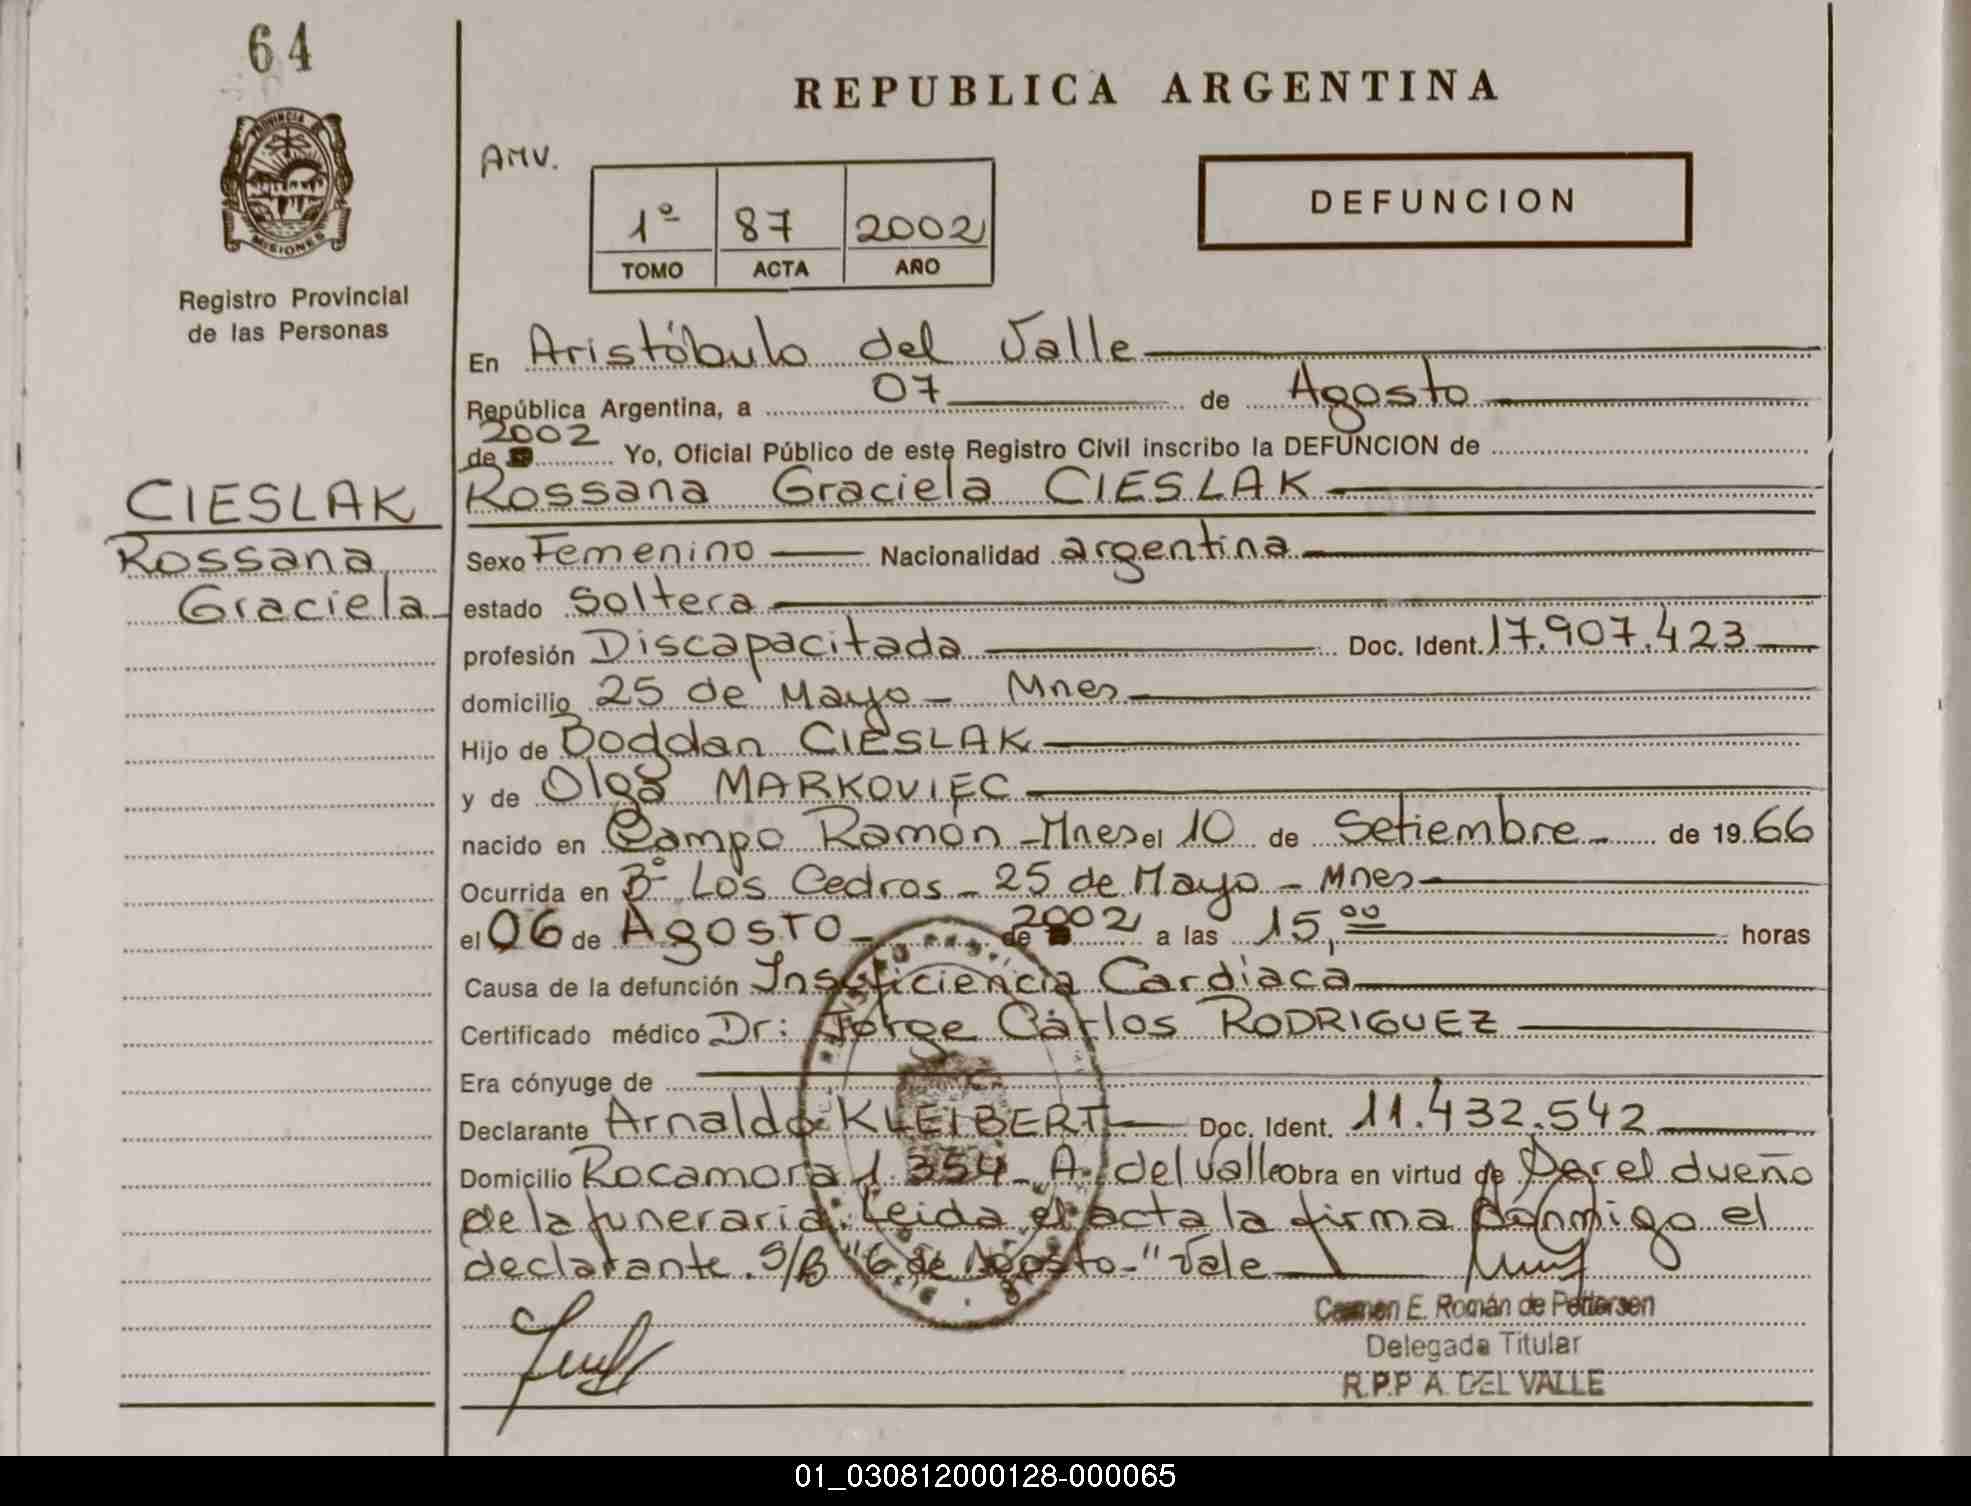 64
REPUBLICA ARGENTINA
PROVINCIA DE
MISIONES
Registro Provincial
de las Personas
AMV.
1º 87 2002
TOMO ACTA AÑO
DEFUNCION
En Aristóbulo del Valle
República Argentina, a 07 de Agosto
2002
de Yo, Oficial Público de este Registro Civil inscribo la DEFUNCION de
CIESLAK
Rossana
Graciela
Rossana Graciela CIESLAK
Sexo Femenino Nacionalidad argentina
estado Soltera
profesión Discapacitada Doc. Ident. 17.907.423
domicilio 25 de Mayo - Mnes
Hijo de Bogdan CIESLAK
y de Olga MARKOVIEC
nacido en Campo Ramón - Mnes el 10 de Setiembre - de 19 66
Ocurrida en Bº Los Cedros - 25 de Mayo - Mnes
el 06 de Agosto - de 2002 a las 15,00 horas
Causa de la defunción Insuficiencia Cardíaca
Certificado médico Dr: Jorge Carlos RODRIGUEZ
Era cónyuge de
Declarante Arnaldo KLEIBERT Doc. Ident. 11.432.542
Domicilio Rocamora 1.354 - A. del Valle obra en virtud de Ser el dueño
de la funeraria. Leida el acta la firma conmigo el
declarante. S/B "6 de Agosto-" Vale
Carmen E. Román de Pettersen
Delegada Titular
R.P.P A. DEL VALLE
01_030812000128-000065